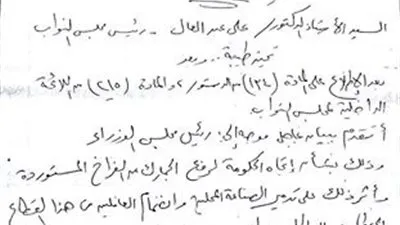 السيد الأستاذ الدكتور / على عبد العال - رئيس مجلس النواب
تحية طيبة .. وبعد
بعد الإطلاع على المادة (١٣٤) من الدستور والمادة (٢١٥) من اللائحة
الداخلية لمجلس النواب
أتقدم ببيان عاجل موجه إلى: رئيس مجلس الوزراء
وذلك بشأن إتجاه الحكومة لرفع الجمارك عن الفراخ المستوردة
وأثر ذلك على تدمير الصناعة المحلية وانضمام العاملين من هذا القطاع